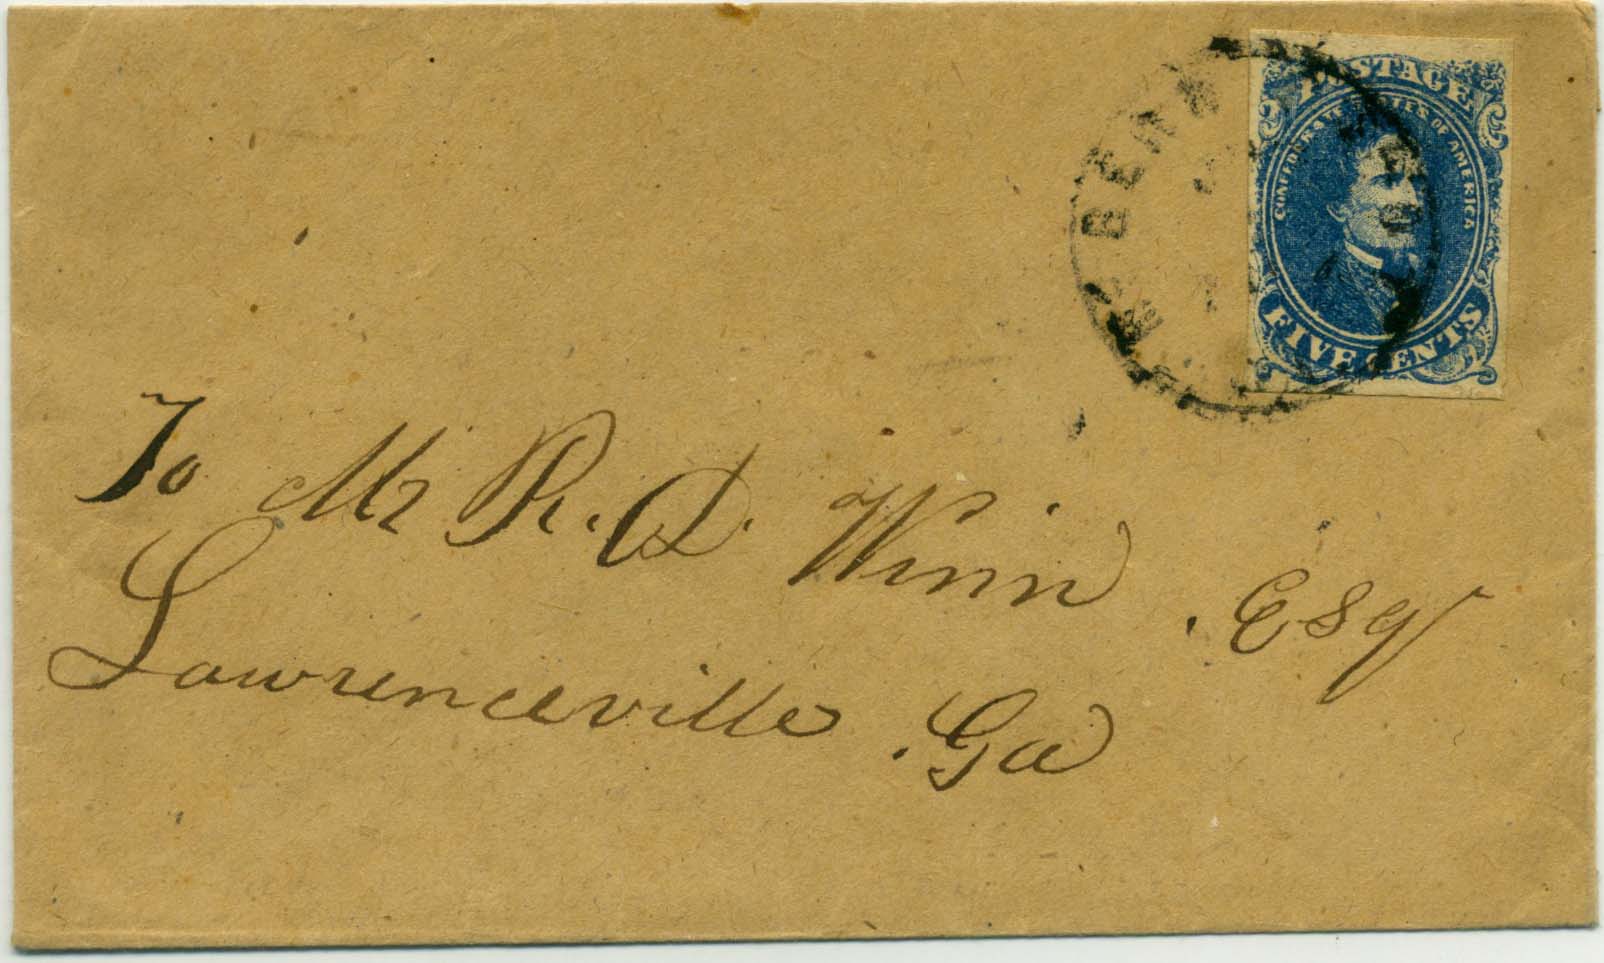 POSTAGE
CONFEDERATE STATES OF AMERICA
FIVE CENTS
To Mr R. D. Winn
. Esqr
Lawrenceville . Ga